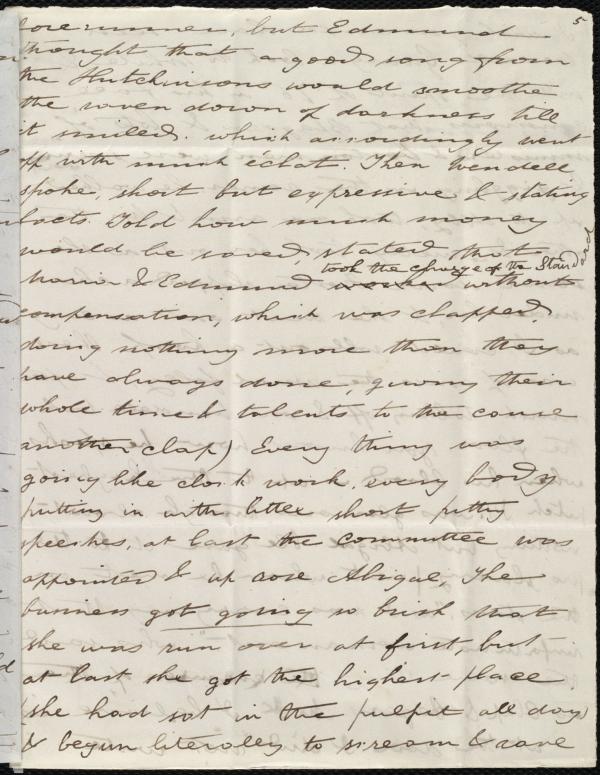 5
forerunner, but Edmund
thought that a good song from
the Hutchinsons would smoothe
the raven down of darkness till
it smiled. which accordingly went
off with much éclat. Then Wendell
spoke, short but expressive & stating
facts. Told how much money
would be saved stated that
took the charge of the Standard
Maria & Edmund without
compensation, which was clapped,
doing nothing more than they
have always done, giving their
whole time & talents to the cause
another clap) Every thing was
going like clock work, every body
putting in with little short pithy
speeches, at last the committee was
appointed & up rose Abigail, The
business got going so brisk that
she was run over at first, but
at last she got the highest place,
(she had sat in the pulpit all day)
& begun literally to scream & rave